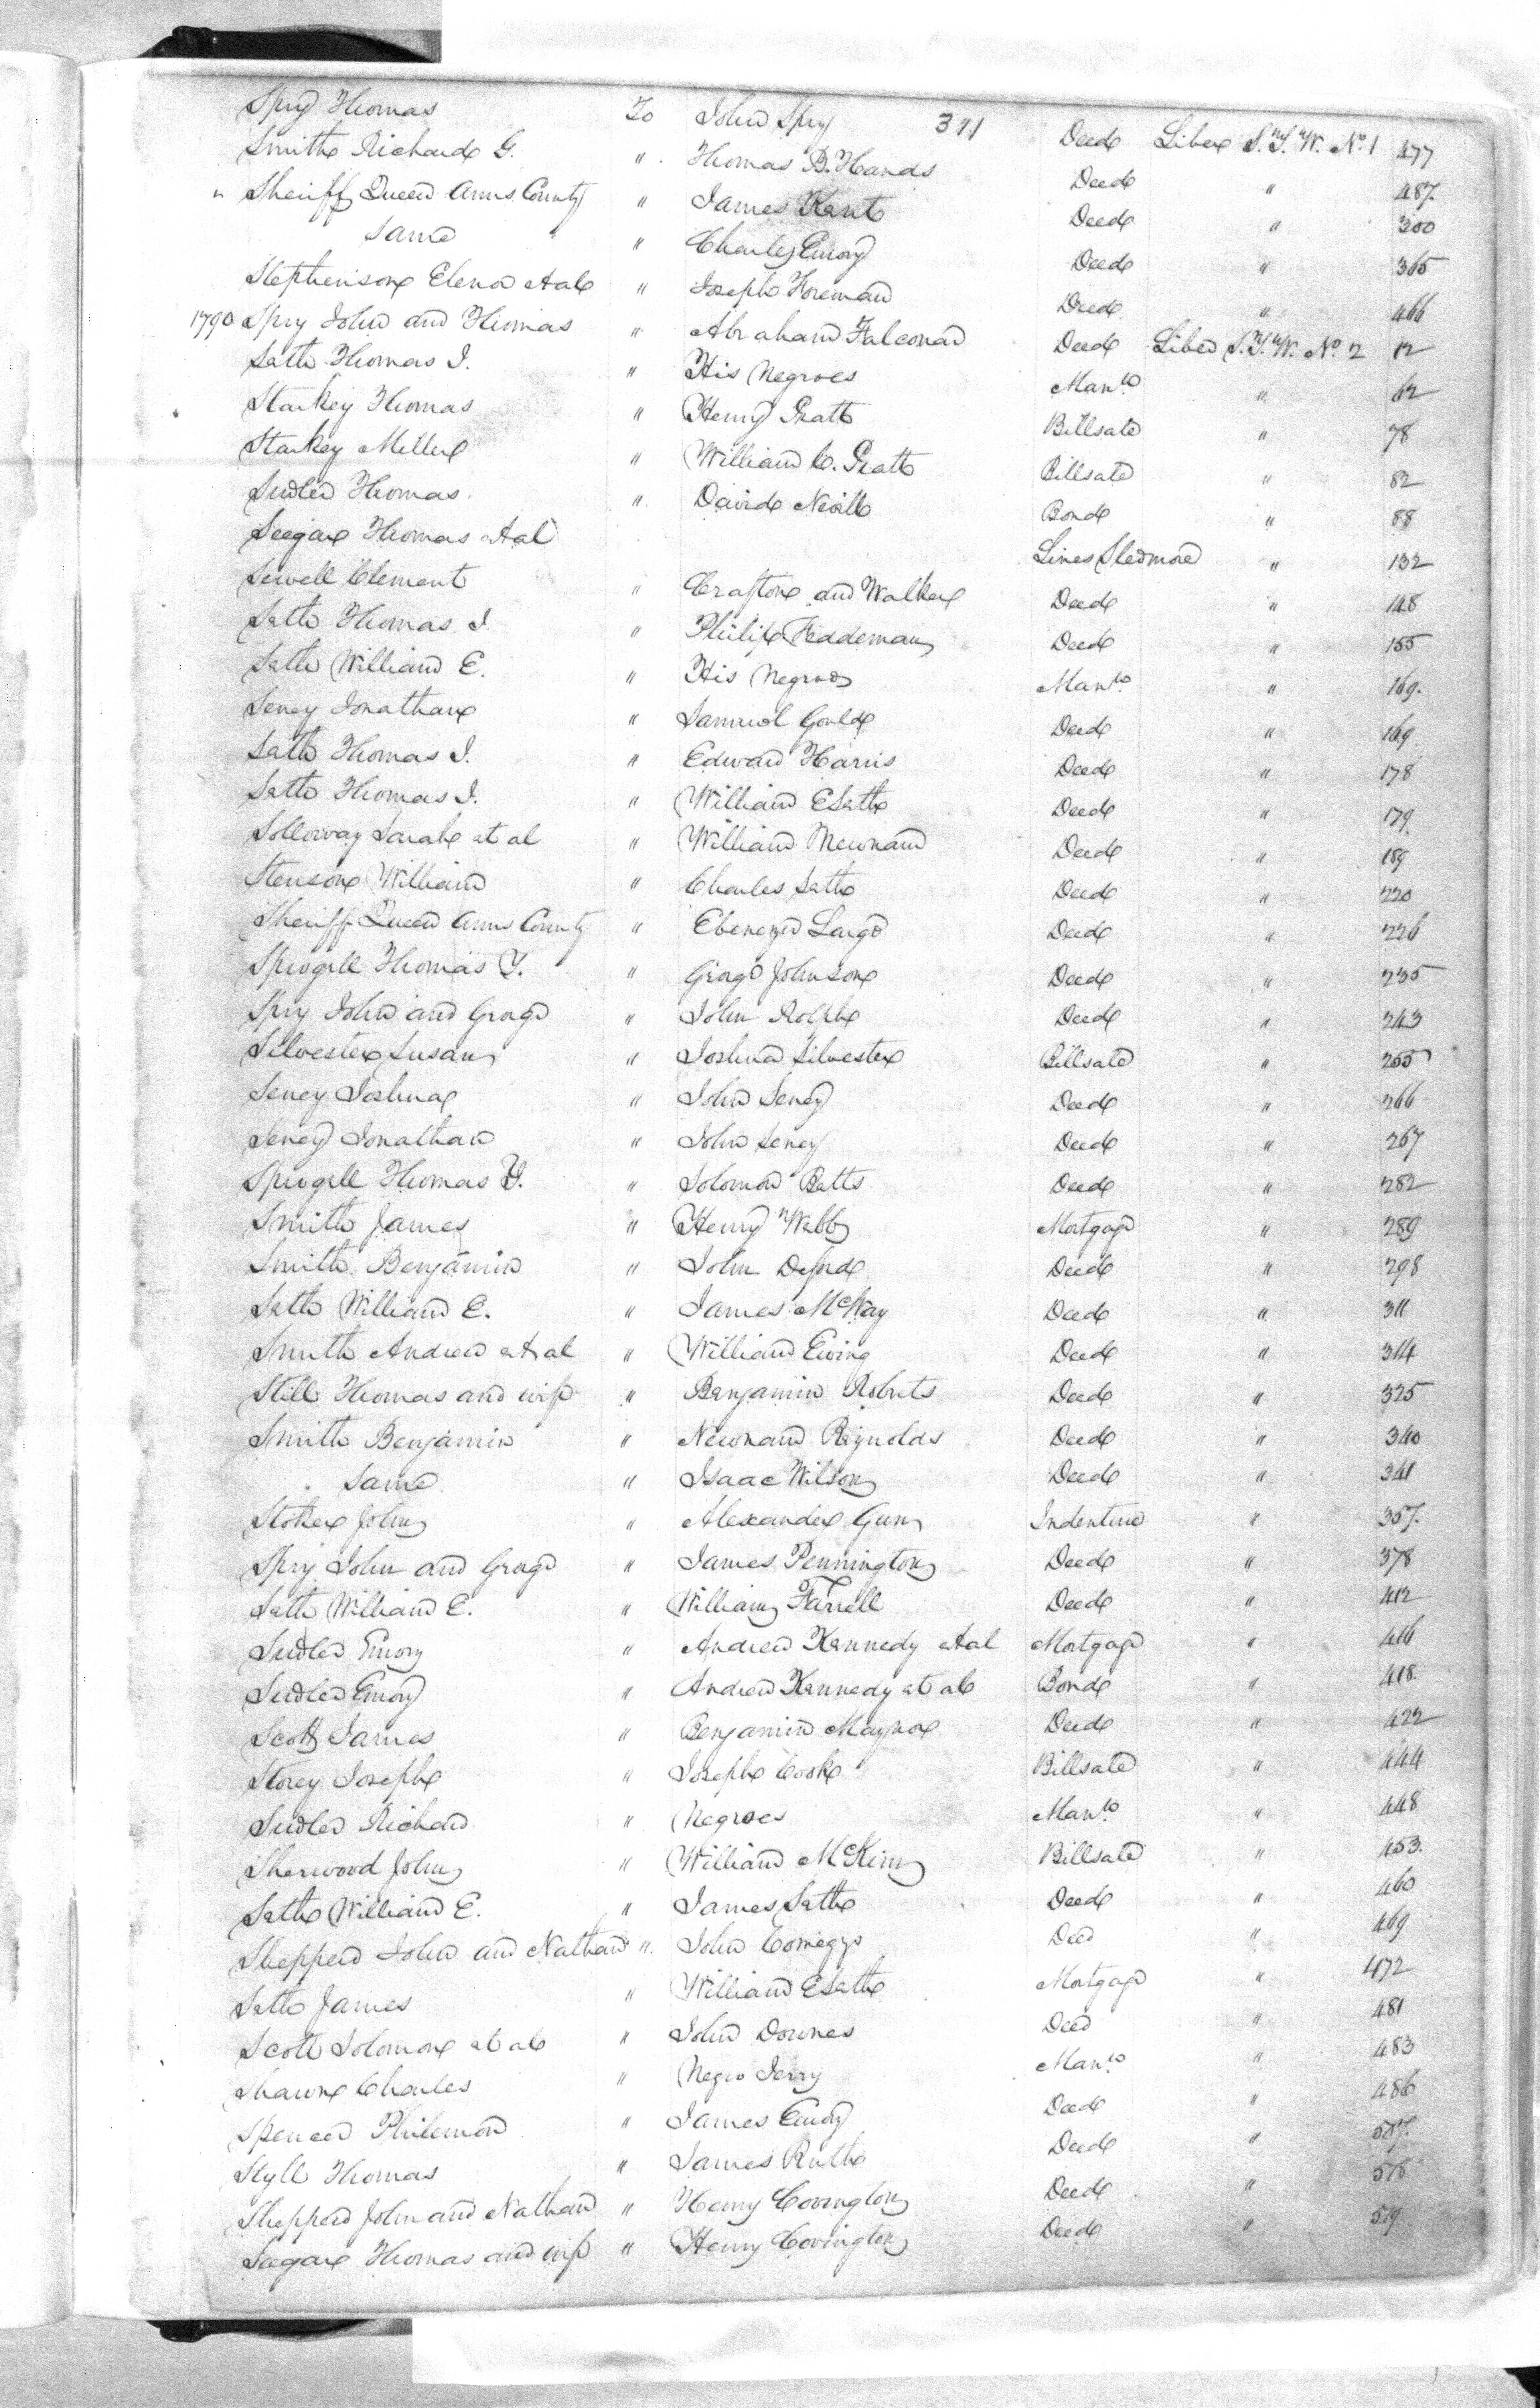 371
Spry Thomas To John Spry Deed Liber S.T.W. No. 1 477
Smith Richard G. " Thomas B. Hands Deed " 487.
" Sheriff Queen Anns County " James Kent Deed " 300
Same " Charles Emory Deed " 365
Stephenson Elenor et al " Joseph Foreman Deed " 466
1790 Spry John and Thomas " Abraham Falconar Deed Liber S.T.W. No. 2 12
Seth Thomas J. " His Negroes Manto. " 62
Starkey Thomas " Henry Pratt Billsale " 78
Starkey Miller " William C. Pratt Billsale " 82
Sudler Thomas " David Nevill Bond " 88
Seegar Thomas et al Lines Sledmore " 132
Sewell Clement " Crafton and Walker Deed " 148
Seth Thomas J. " Philip Feddeman Deed " 155
Seth William E. " His Negroes Manto. " 169.
Seney Jonathan " Samuel Gould Deed " 169.
Seth Thomas J. " Edward Harris Deed " 178
Seth Thomas J. " William E Seth Deed " 179.
Solloway Sarah et al " William Mewnam Deed " 189
Stenson William " Charles Seth Deed " 220
Sheriff Queen Anns County " Ebenezer Large Deed " 226
Sprogell Thomas Y. " George Johnson Deed " 235
Spry John and George " John Rolph Deed " 243
Silvester Susan " Joshua Silvester Billsale " 255
Seney Joshua " John Seney Deed " 266
Seney Jonathan " John Seney Deed " 267
Sprogell Thomas Y. " Solomon Betts Deed " 282
Smith James " Henry Webb Mortgage " 289
Smith Benjamin " John Deford Deed " 298
Seth William E. " James McKay Deed " 311
Smith Andrew et al " William Ewing Deed " 314
Still Thomas and wife " Benjamin Roberts Deed " 325
Smith Benjamin " Newnam Reynolds Deed " 340
Same " Isaac Wilson Deed " 341
Stoker John " Alexander Gunn Indenture " 357.
Spry John and George " James Pennington Deed " 378
Seth William E. " William Farrell Deed " 412
Sudler Emory " Andrew Kennedy et al Mortgage " 416
Sudler Emory " Andrew Kennedy et al Bond " 418.
Scott James " Benjamin Maynor Deed " 422
Storey Joseph " Joseph Cook Billsale " 444
Sudler Richard " Negroes Manto. " 448
Sherwood John " William McKim Billsale " 453.
Seth William E. " James Seth Deed " 460
Shepperd John and Nathan " John Comegys Deed " 469
Seth James " William E Seth Mortgage " 472
Scott Solomon et al " John Downes Deed " 481
Shawn Charles " Negro Jerry Manto. " 483
Spencer Philemon " James Emory Deed " 486
Styll Thomas " James Ruth Deed " 507.
Shepperd John and Nathan " Henry Covington Deed " 518
Seegar Thomas and wife " Henry Covington Deed " 519